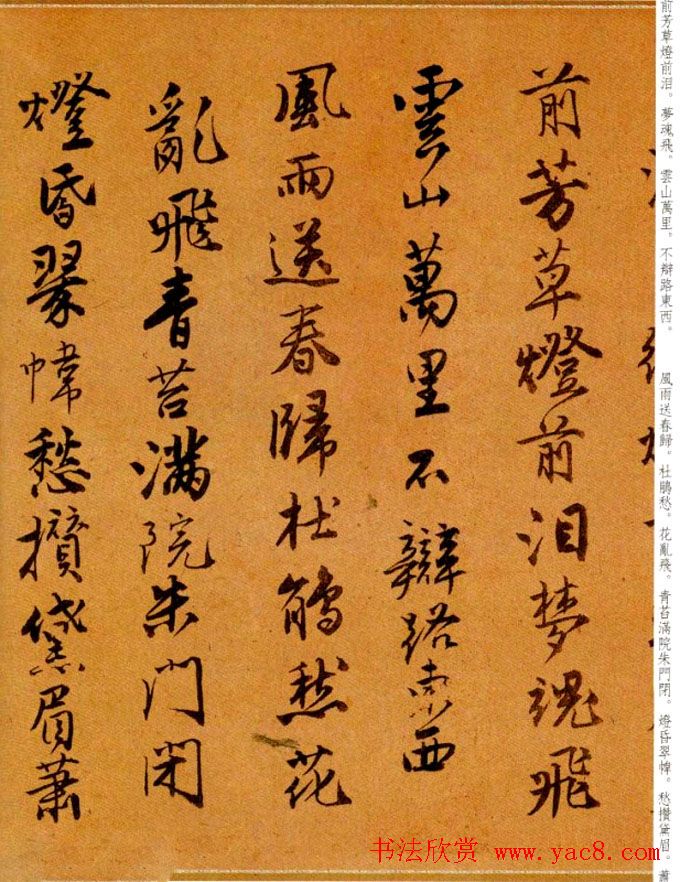 前芳草燈前泪。夢魂飛。雲山萬里。不辯路東西。
風雨送春歸。杜鵑愁。花亂飛。青苔滿院朱門閉。燈昏翠幃。愁攢黛眉。蕭
前芳草燈前泪梦魂飛
雲山萬里不辯路東西
風雨送春歸杜鵑愁花
亂飛青苔满院朱門閉
燈昏翠幃愁攢黛眉蕭
书法欣赏 www.yac8.com